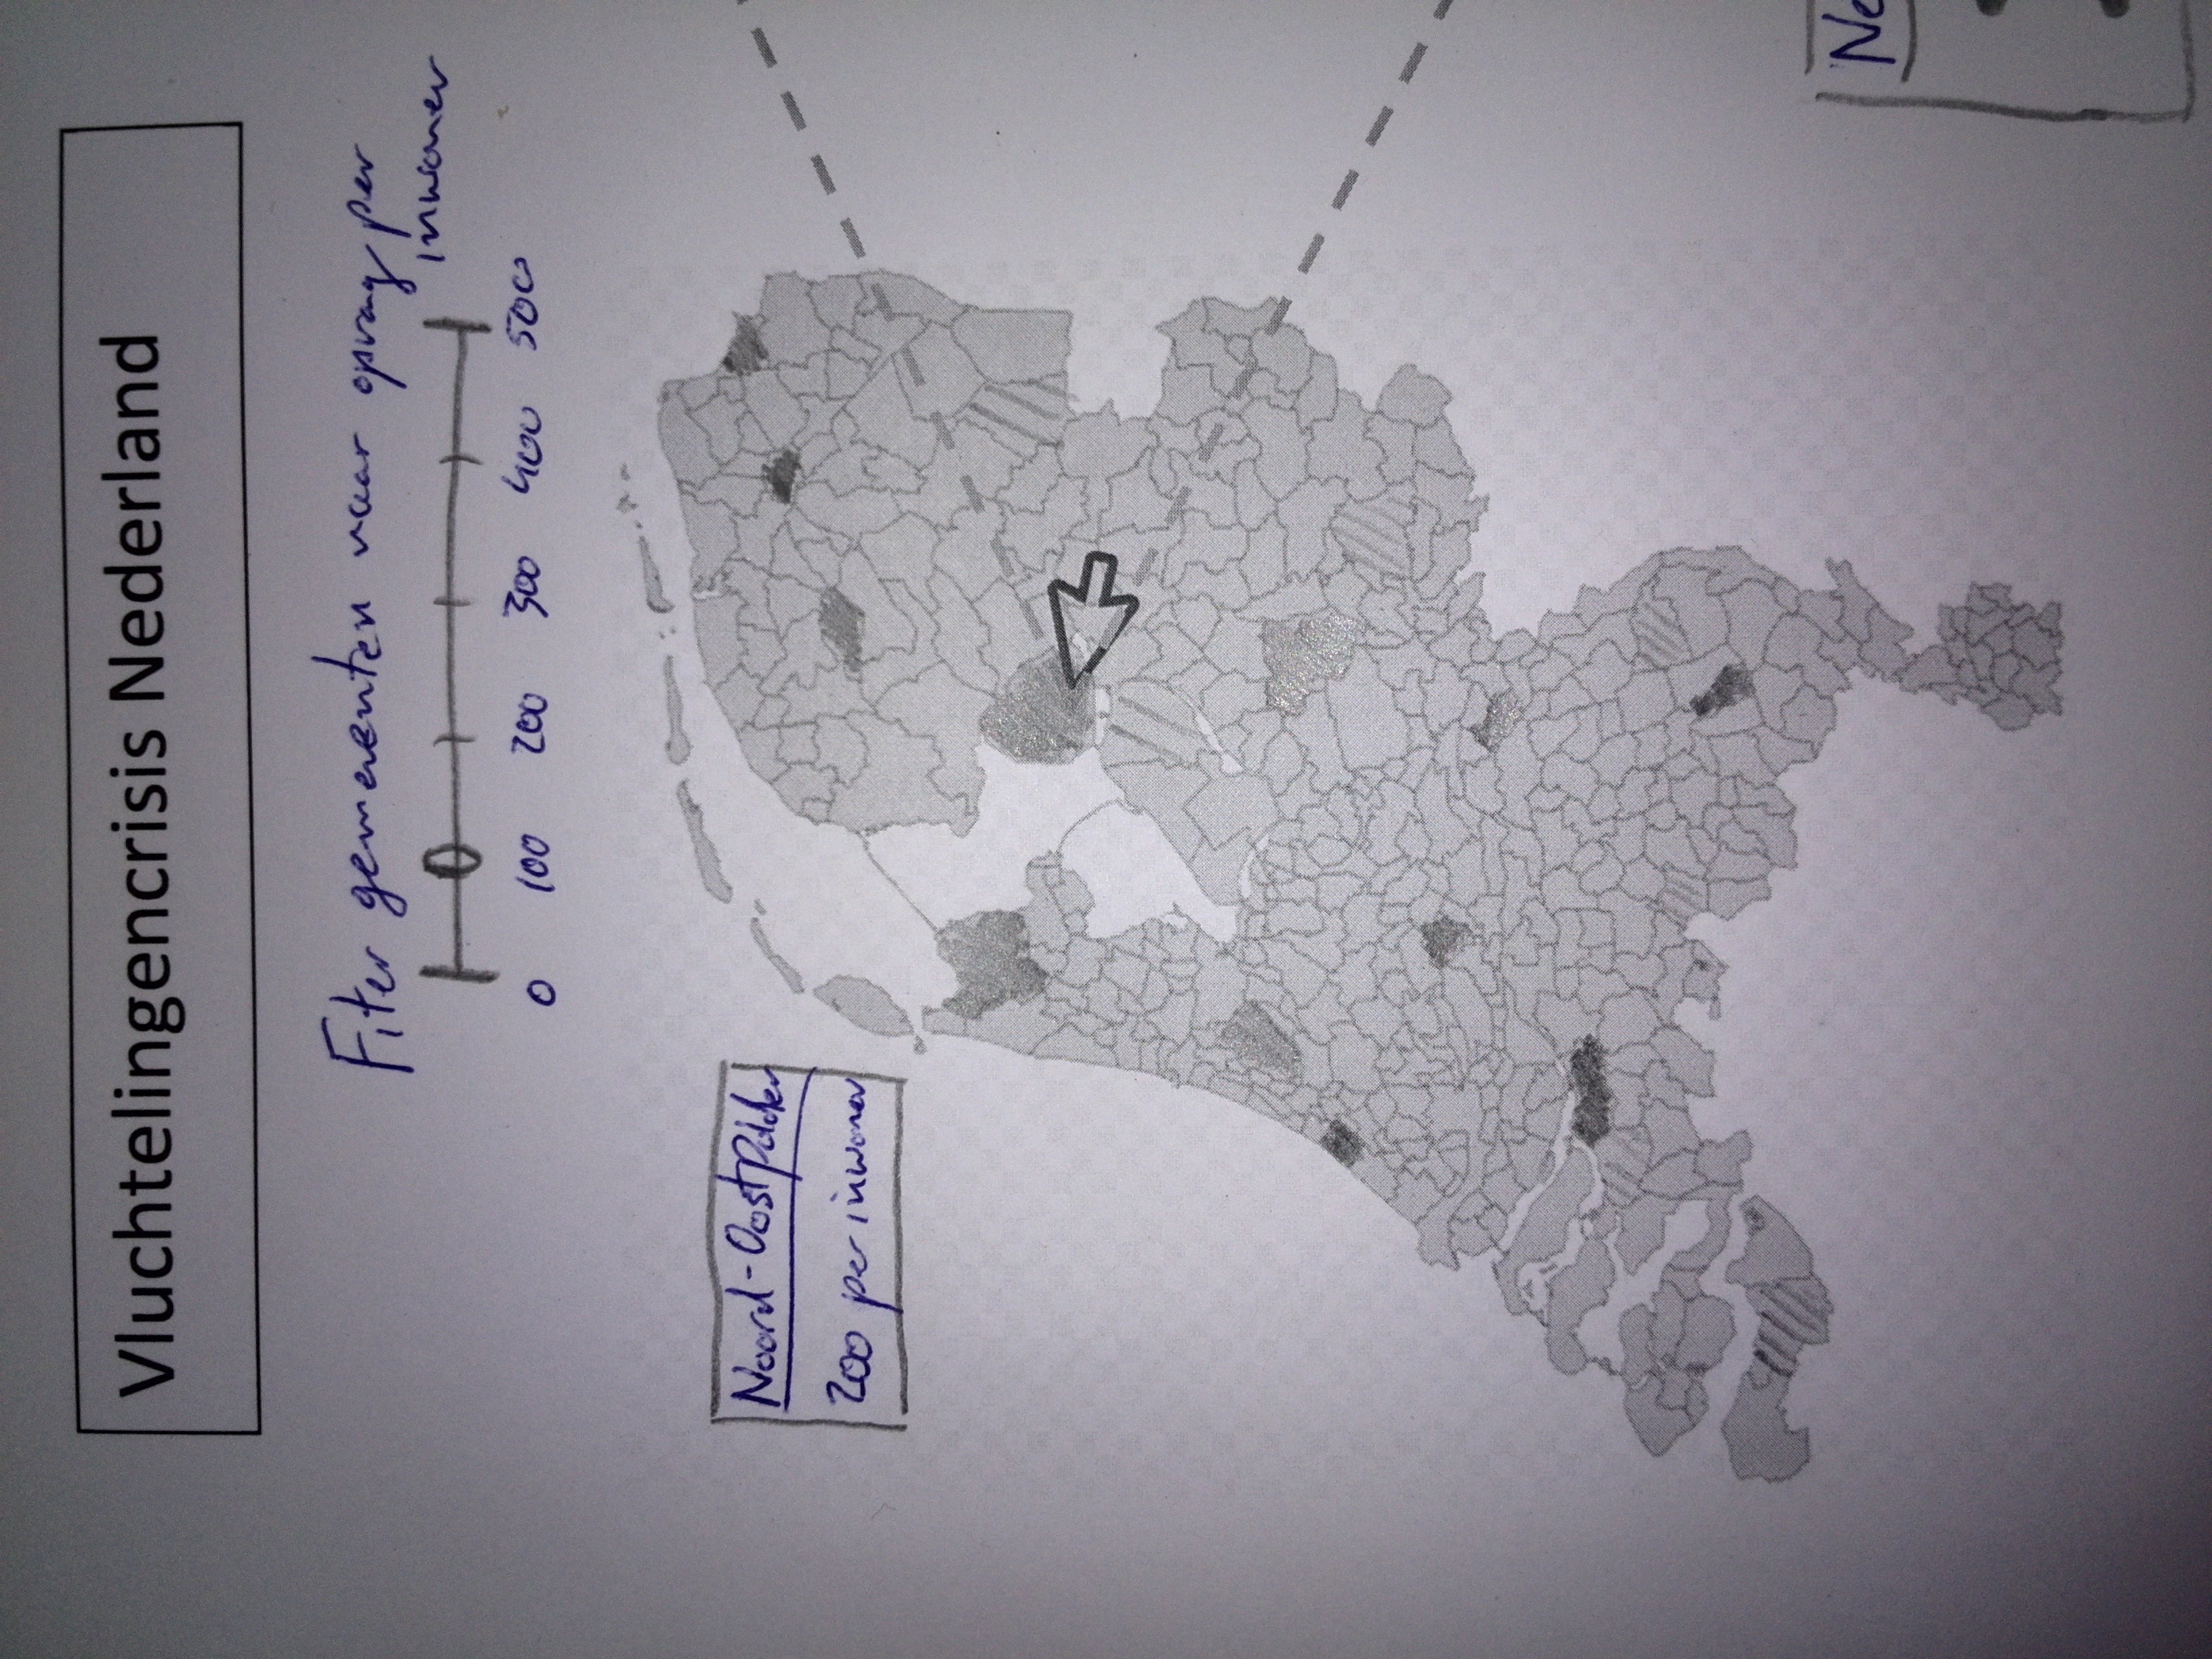 Vluchtelingencrisis Nederland
Fiter gemeenten naar opvang per
inwoner
0 100 200 300 400 500
Noord-Oostpolder
200 per inwoner
Ne